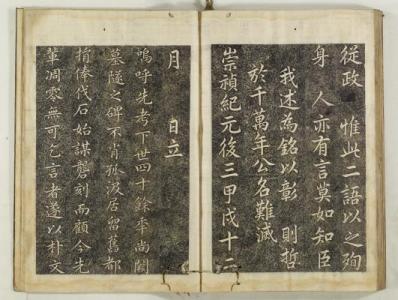 從政 惟此二語以之殉
身 人亦有言莫如知臣
我述為銘以彰 則哲
於千萬年公名難滅
崇禎紀元後三甲戌十二
月 日立
嗚呼先考下世四十餘年尚闕
墓隧之碑不肖孤汲居留舊都
捐俸伐石始謀礱刻而顧今先
輩凋零無可乞言者遂以朴文